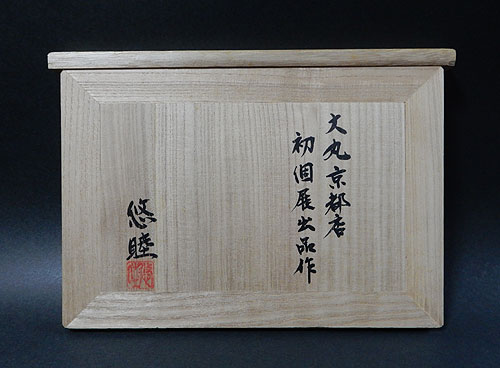 大丸京都店
初個展出品作
悠睦